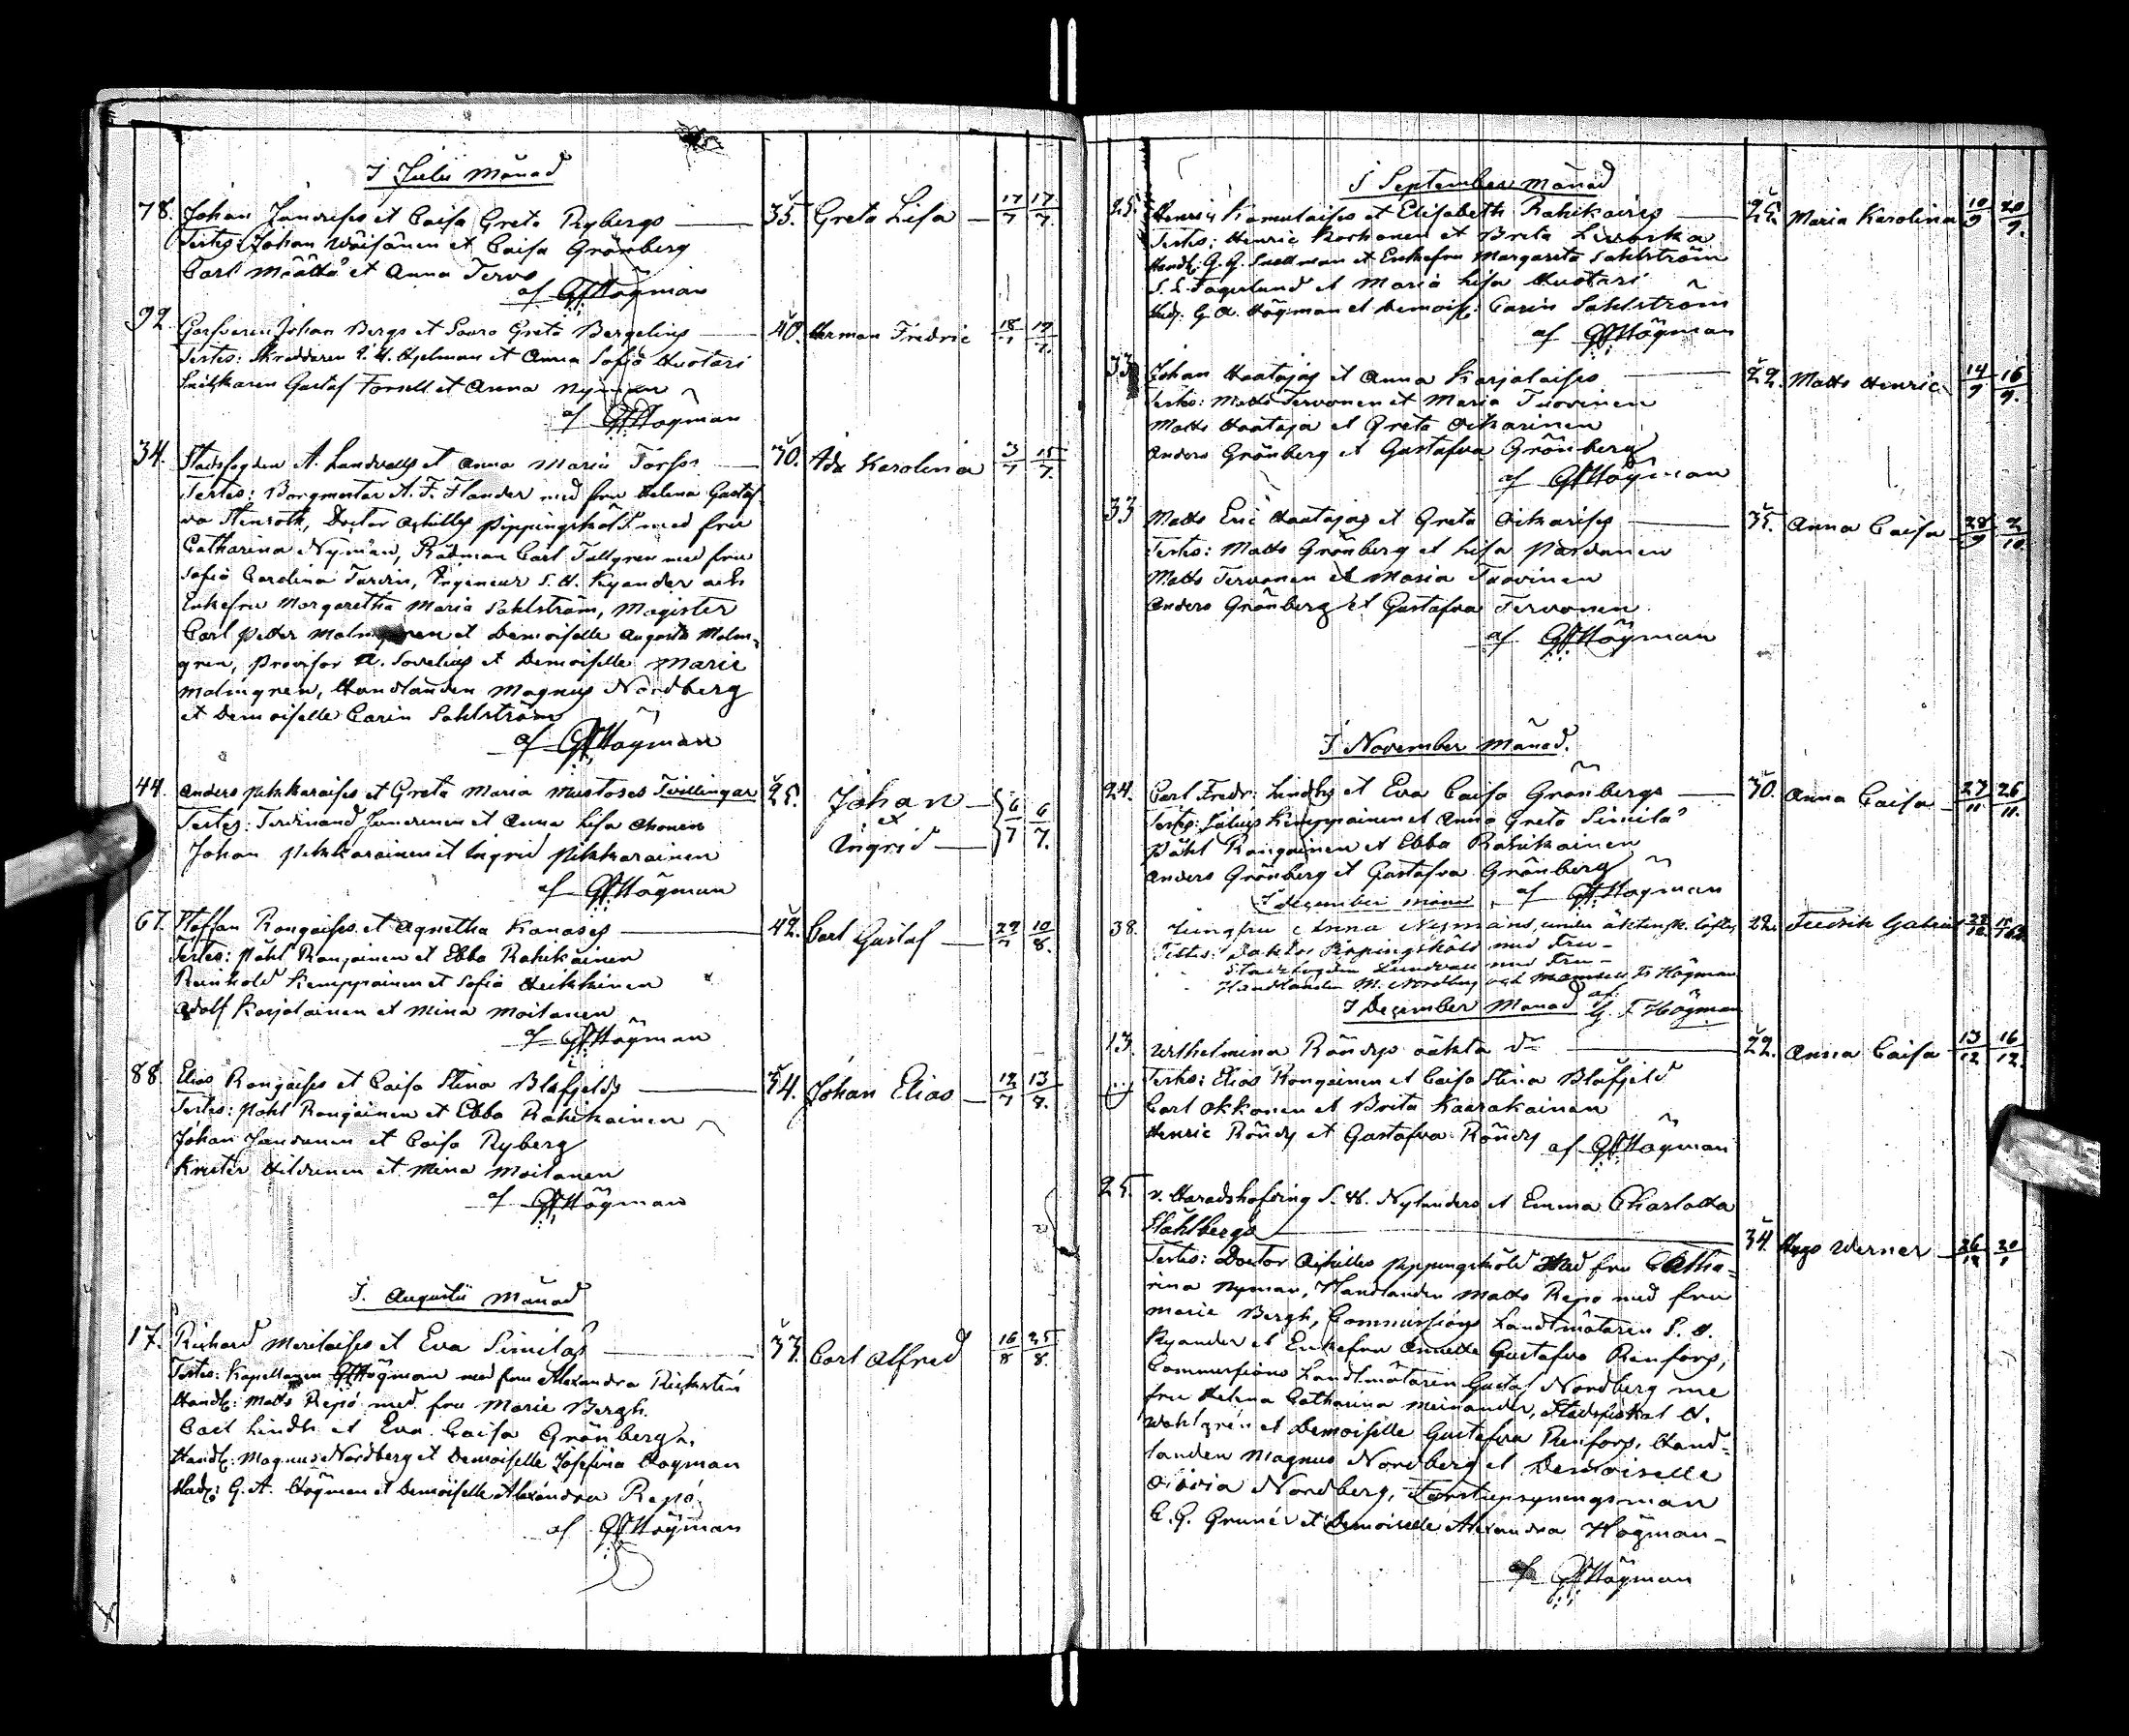 I Julii Månad
78. Johan Jandrises et Caisa Greta Rybergs 35. Greta Lisa 17/7 17/7.
Testes: Johan Wäisänen et Caisa Grönberg
Carl Määttä et Anna Tervo
af GFHögman
92. Garfveren Johan Bergs et Saara Greta Bergelius 40. Herman Fredric 18/7 19/7.
Testes: Skreddaren Hjelman et Anna Sofia Huotari
Gustaf Forsell et Anna Nyman
af GFHögman
34. Stadsfogden A. Landvalls et Anna Maria Forss 30. Ada Karolina 3/7 15/7.
Testes: Borgmester A. F. Flander med fru Helena Gustaf-
va Stenroth, Doctor Achilles Pippingsköld med fru
Catharina Nyman, Rådman Carl Tallgren med fru
Sofia Carolina Ingenieur S. H. Kyander och
Enkefru Margaretha Maria Sahlström, Magister
Carl Petter Malmgren et Demoiselle Augusta Malm-
gren, Provisor A. Sovelius et Demoiselle Marie
Malmgren, Handlanden Magnus Nordberg
et Demoiselle Carin Sahlström
af GFHögman
44. Anders Pikkaraises et Greta Maria Mustoses Tvillingar 25. Johan et Ingrid 6/7 6/7.
Testes: Ferdinand Juntunen et Anna Lisa Ahonen
Johan Pikkarainen et Ingrid Pikkarainen
af GFHögman
67. Staffan Rongaises et Agnetha Kanases 42. Carl Gustaf 29/7 10/8.
Testes: Påhl Rongainen et Ebba Rahikainen
Reinhold Kemppainen et Sofia Heikkinen
Adolf Karjalainen et Mina Moilanen
af GFHögman
88. Elias Rongaises et Caisa Stina Blåfjelds 34. Johan Elias 12/7 13/8.
Testes: Påhl Rongainen et Ebba Rahikainen
Johan Jandunen et Caisa Ryberg
Krister Hildunen et Mina Moilanen
af GFHögman
I. Augustii Månad
17. Richard Merilaises et Eva Similas 33. Carl Alfred 16/8 25/8.
Testes: Kapellanen GFHögman med fru Alexandra
Handl: Matts Repo med fru Marie Bergh.
Carl Lindh et Eva Caisa Grönbergh.
Handl: Magnus Nordberg et Demoiselle Josefina Högman
Handl: G. A. Högman et Demoiselle Alexandra Repo
af GFHögman
I September månad
25. Henric Kamulaises et Elisabeth Rahikaises 25. Maria Karolina 10/9 20/9.
Testes: Henric Korhonen et Breta
Handl: G. G. Snellman et Enkefru Margareta Sahlström
S. E. Fagerlund et Maria Lisa Huotari
Handl: G. A. Högman et Demoisl: Carin Sahlström
af GFHögman
33 Johan Haatajas et Anna Karjalaises 22. Matts Henric 14/9 16/9.
Testes: Matts Tervonen et Maria Tuovinen
Matts Haataja et Greta Oikarinen
Anders Grönberg et Gustafva Grönberg
af GFHögman
33 Matts Eric Haatajas et Greta Oikarises 35. Anna Caisa 28/9 2/10
Testes: Matts Grönberg et Lisa Pardanen
Matts Tervonen et Maria Tuovinen
Anders Grönberg et Gustafva Tervonen
af GFHögman
I November månad.
24. Carl Fredr: Lindhs et Eva Caisa Grönbergs 30. Anna Caisa 27/11 26/11.
Testes: Julius Kemppainen et Anna Greta Similä
Påhl Rongainen et Ebba Rahikainen
Anders Grönberg et Gustafva Grönberg
I december månad af GFHögman
38. Jungfru Anna Nymans, under äktensk. löfte 22. Fredrik Gabriel
Testes: Doktor Pippingsköld med Fru
Stadsfogden Lundvall med Fru
Handlanden M. Nordberg och Mamsell Högman
I December Månad af G. F Högman
13. Wilhelmina Röndys oäkta dr 22. Anna Caisa 13/12 16/12.
Testes: Elias Rongainen et Caisa Stina Blåfjeld
Carl Okkonen et Brita Kaarakainen
Henric Röndy et Gustafva Röndy af GFHögman
25. v. Häradshöfding S. W. Nylanders et Emma Charlotta
Ståhlbergs 34. Hugo Werner 26/12 20/1
Testes: Doctor Achilles Pippingsköld Med fru Catha-
rina Nyman, Handlanden Matts Repo med fru
Marie Bergh, Commissions Landtmätaren S. H.
Kyander et Enkefru Annette Gustafva Renfors,
Commissions Landtmätaren Gustaf Nordberg me
fru Helena Catharina Meinander, Stadsfiskal A.
Wahlgrén et Demoiselle Gustafva Renfors, Hand-
landen Magnus Nordberg et Demoiselle
Olivia Nordberg, Forstupsyningsman
C. G. Grunér et Demoiselle Alexandra Högman
af GFHögman